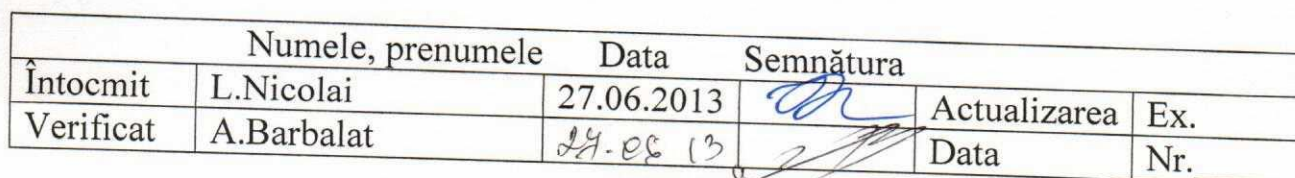 Numele, prenumele Data Semnătura
Întocmit L.Nicolai 27.06.2013 Actualizarea Ex.
Verificat A.Barbalat Data Nr.